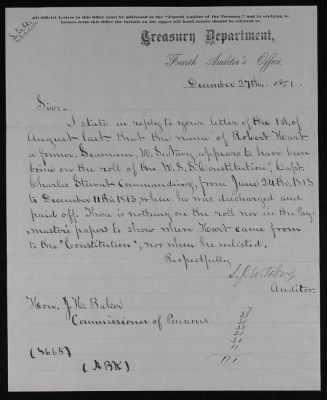 All Official Letters to this Office must be addressed to the "Fourth Auditor of the Treasury," and in replying to
Letters from this Office the initials on the upper left hand corner should be referred to.
Treasury Department,
Fourth Auditor's Office,
December 27th. 1871.
Sir:-
I state in reply to your letter of the 1st. of
August last that the name of Robert Hart
a former Seaman, U.S. Navy appears to have been
borne on the roll of the U.S.S. "Constitution", Capt.
Charles Stewart Commanding, from June 24th. 1813
to December 11th 1813, when he was discharged and
paid off. There is nothing on the roll nor in the Pay-
master's papers to show where Hart came from
to the "Constitution", nor when he enlisted.
Respectfully
Auditor.
Hon. J. H. Baker
Commissioner of Pensions
(ABK)